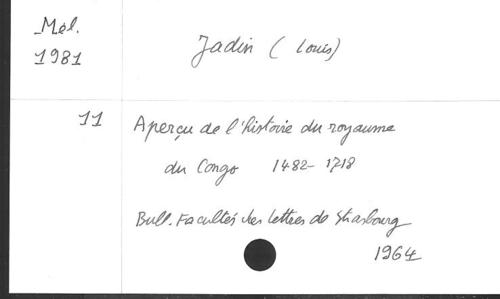 Mél.
1981
Jadin (Louis)
11
Aperçu de l'histoire du royaume
du Congo 1482-1718
Bull. Facultés des lettres de Strasbourg
1964